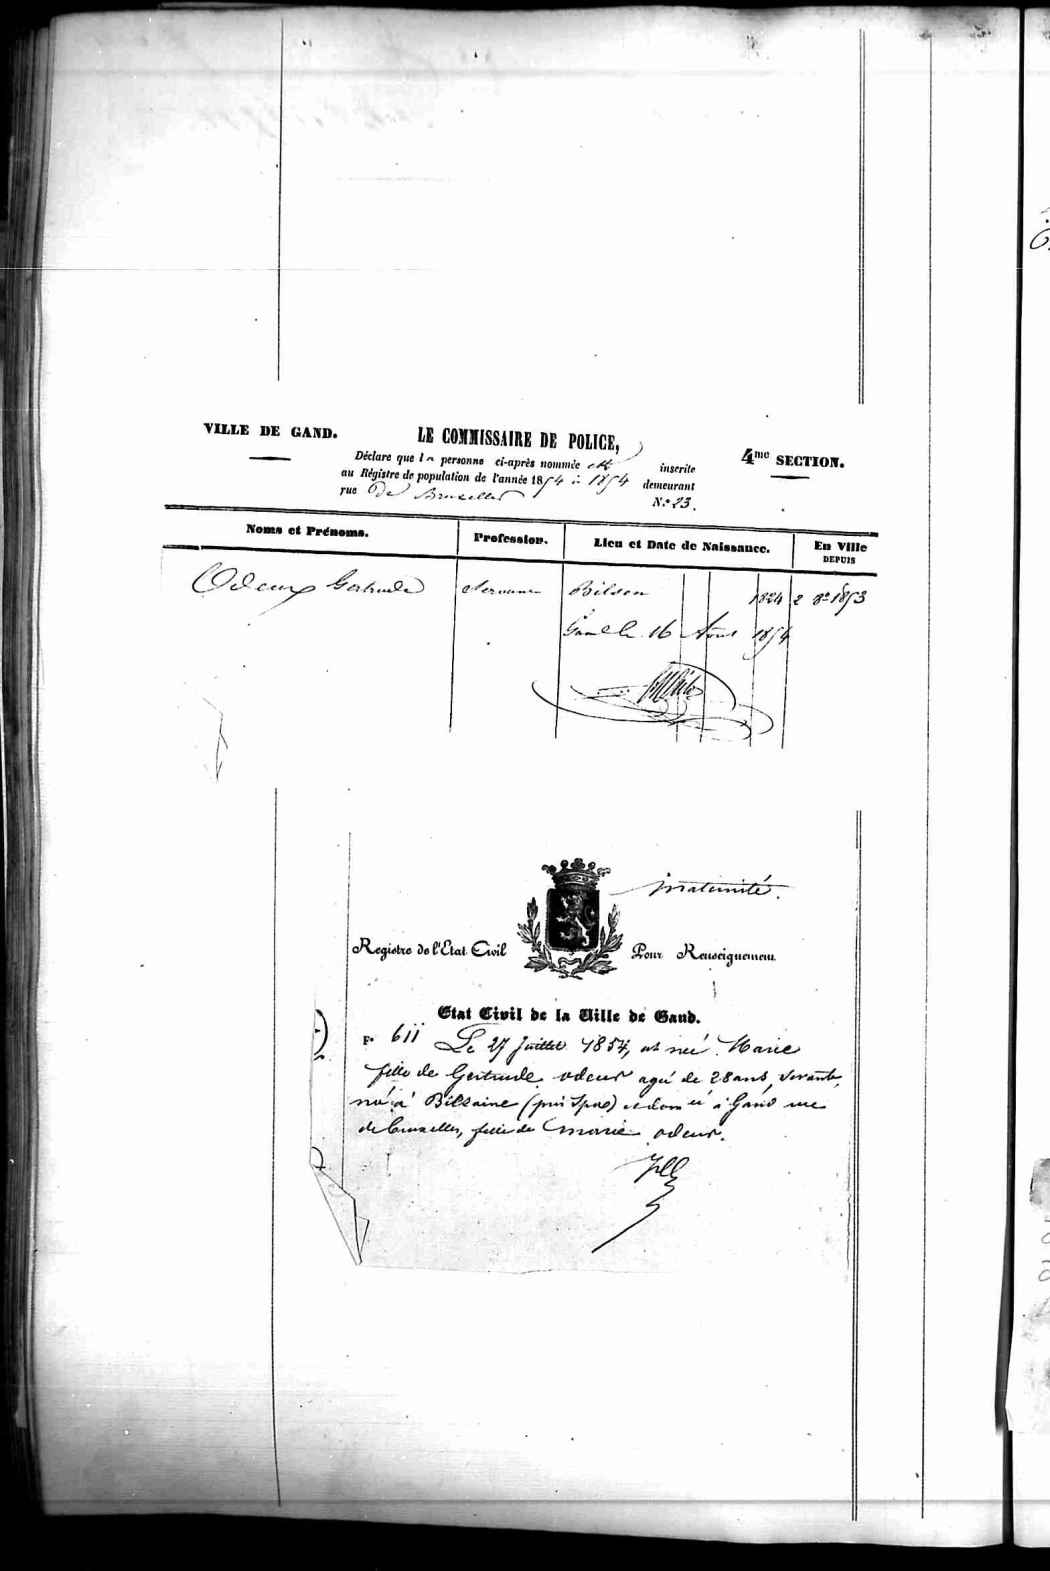 VILLE DE GAND.
LE COMMISSAIRE DE POLICE,
4me SECTION.
Déclare que la personne ci-après nommée est inscrite
au Régistre de population de l'année 1854 à 1854 demeurant
rue De Bruxelles No 23.
Noms et Prénoms. Profession. Lieu et Date de Naissance. En Ville DEPUIS
Odeur Gertrude Servante Bilsen 1824 2 8re 1853
Gand le 16 Août 1854
Maternité.
Registre de l'Etat Civil Pour Renseignement
Etat Civil de la Ville de Gand.
Fo 611 Le 27 Juillet 1854, est née Marie
fille de Gertrude Odeur agée de 28 ans, servante,
née à Bilsaine (près Spas) et dom ée à Gand rue
de Bruxelles, fille de Marie Odeur.